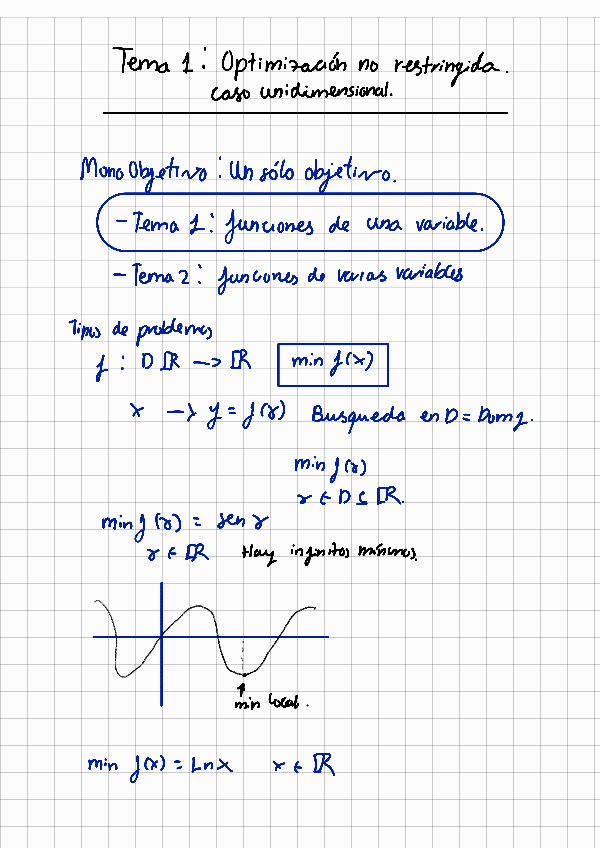 Tema 1: Optimización no restringida.
caso unidimensional.
Mono Objetivo: Un sólo objetivo.
- Tema 1: funciones de una variable.
- Tema 2: funciones de varias variables
Tipos de problemas
f : D ℝ → ℝ min f(x)
x → y = f(x) Busqueda en D = Dom f.
min f(x)
x ∈ D ⊆ ℝ.
min f(x) = sen x
x ∈ ℝ Hay infinitos mínimos.
min local.
min f(x) = Ln x x ∈ ℝ